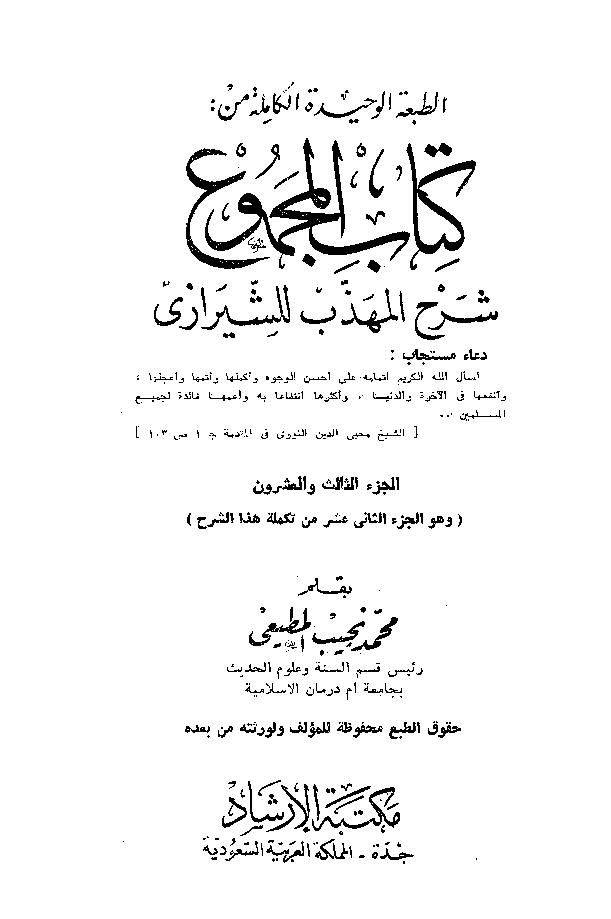 الطبعة الوحيدة الكاملة من :
كتاب المجموع
شرح المهذب للشيرازى
دعاء مستجاب :
أسأل الله الكريم اتمامه على أحسن الوجوه وأكملها وأتمها وأعجلها ،
وأنفعها فى الآخرة والدنيا ، وأكثرها انتفاعا به وأعمها فائدة لجميع
المسلمين ..
[ الشيخ محيى الدين النووى فى المقدمة ج ١ ص ١٠٣ ]
الجزء الثالث والعشرون
( وهو الجزء الثانى عشر من تكملة هذا الشرح )
بقلم
محمد نجيب المطيعى
رئيس قسم السنة وعلوم الحديث
بجامعة أم درمان الاسلامية
حقوق الطبع محفوظة للمؤلف ولورثته من بعده
مكتبة الإرشاد
جدة - المملكة العربية السعودية